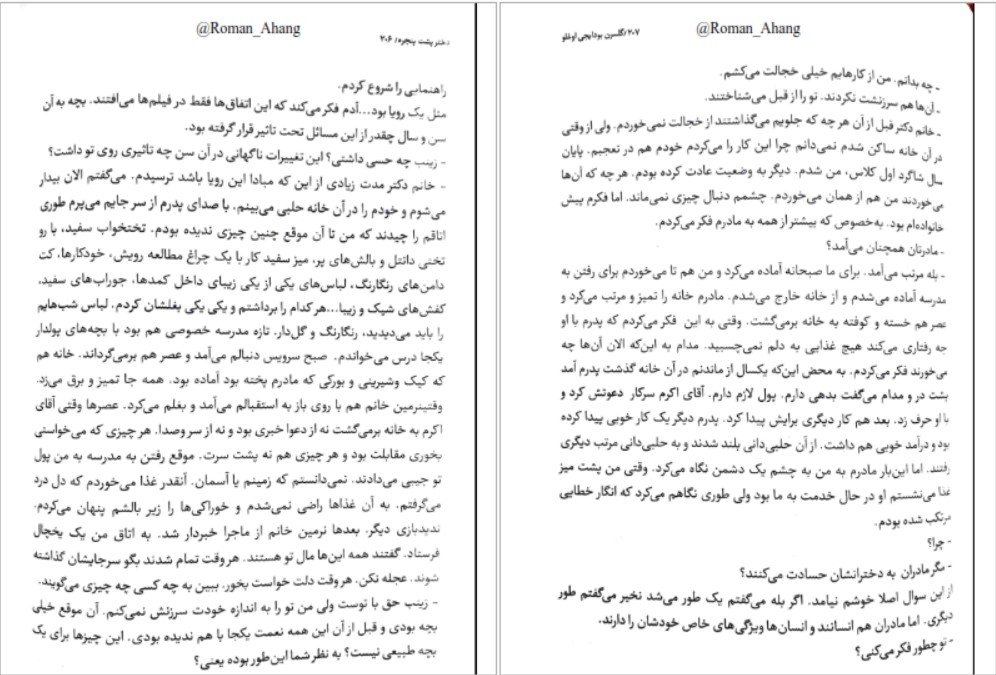 @Roman_Ahang
دختر پشت پنجره/ ۲۰۶
راهنمایی را شروع کردم.
مثل یک رویا بود...آدم فکر می‌کند که این اتفاق‌ها فقط در فیلم‌ها می‌افتند. بچه به آن
سن و سال چقدر از این مسائل تحت تاثیر قرار گرفته بود.
- زینب چه حسی داشتی؟ این تغییرات ناگهانی در آن سن چه تاثیری روی تو داشت؟
- خانم دکتر مدت زیادی از این که مبادا این رویا باشد ترسیدم. می‌گفتم الان بیدار
می‌شوم و خودم را در آن خانه حلبی می‌بینم. با صدای پدرم از سر جایم می‌پرم طوری
اتاقم را چیدند که من تا آن موقع چنین چیزی ندیده بودم. تختخواب سفید، با رو
تختی دانتل و بالش‌های پر، میز سفید کار با یک چراغ مطالعه رویش، خودکارها، کت
دامن‌های رنگارنگ، لباس‌های یکی از یکی زیبای داخل کمدها، جوراب‌های سفید،
کفش‌های شیک و زیبا...هر کدام را برداشتم و یکی یکی بغلشان کردم. لباس شب‌هایم
را باید می‌دیدید، رنگارنگ و گل‌دار. تازه مدرسه خصوصی هم بود با بچه‌های پولدار
یکجا درس می‌خواندم. صبح سرویس دنبالم می‌آمد و عصر هم برمی‌گرداند. خانه هم
که کیک وشیرینی و بورکی که مادرم پخته بود آماده بود. همه جا تمیز و برق می‌زد.
وقتینرمین خانم هم با روی باز به استقبالم می‌آمد و بغلم می‌کرد. عصرها وقتی آقای
اکرم به خانه برمی‌گشت نه از دعوا خبری بود و نه از سر وصدا. هر چیزی که می‌خواستی
بخوری مقابلت بود و هر چیزی هم نه پشت سرت. موقع رفتن به مدرسه به من پول
تو جیبی می‌دادند. نمی‌دانستم که زمینم یا آسمان. آنقدر غذا می‌خوردم که دل درد
می‌گرفتم. به آن غذاها راضی نمی‌شدم و خوراکی‌ها را زیر بالشم پنهان می‌کردم.
ندیدبازی دیگر. بعدها نرمین خانم از ماجرا خبردار شد. به اتاق من یک یخچال
فرستاد. گفتند همه این‌ها مال تو هستند. هر وقت تمام شدند بگو سرجایشان گذاشته
شوند. عجله نکن. هر وقت دلت خواست بخور. ببین به چه کسی چه چیزی می‌گویند.
- زینب حق با توست ولی من تو را به اندازه خودت سرزنش نمی‌کنم. آن موقع خیلی
بچه بودی و قبل از آن این همه نعمت یکجا با هم ندیده بودی. این چیزها برای یک
بچه طبیعی نیست؟ به نظر شما این‌طور بوده یعنی؟
@Roman_Ahang
۲۰۷/گلسرن بودایجی اوغلو
- چه بدانم. من از کارهایم خیلی خجالت می‌کشم.
- آن‌ها هم سرزنشت نکردند. تو را از قبل می‌شناختند.
- خانم دکتر قبل از آن هر چه که جلویم می‌گذاشتند از خجالت نمی‌خوردم. ولی از وقتی
در آن خانه ساکن شدم نمی‌دانم چرا این کار را می‌کردم خودم هم در تعجبم. پایان
سال شاگرد اول کلاس، من شدم. دیگر به وضعیت عادت کرده بودم. هر چه که آن‌ها
می‌خوردند من هم از همان می‌خوردم. چشمم دنبال چیزی نمی‌ماند. اما فکرم پیش
خانواده‌ام بود. به‌خصوص که بیشتر از همه به مادرم فکر می‌کردم.
- مادرتان همچنان می‌آمد؟
- بله مرتب می‌آمد. برای ما صبحانه آماده می‌کرد و من هم تا می‌خوردم برای رفتن به
مدرسه آماده می‌شدم و از خانه خارج می‌شدم. مادرم خانه را تمیز و مرتب می‌کرد و
عصر هم خسته و کوفته به خانه برمی‌گشت. وقتی به این فکر می‌کردم که پدرم با او
چه رفتاری می‌کند هیچ غذایی به دلم نمی‌چسبید. مدام به این‌که الان آن‌ها چه
می‌خورند فکر می‌کردم. به محض این‌که یکسال از ماندنم در آن خانه گذشت پدرم آمد
پشت در و مدام می‌گفت بدهی دارم. پول لازم دارم. آقای اکرم سرکار دعوتش کرد و
با او حرف زد. بعد هم کار دیگری برایش پیدا کرد. پدرم دیگر یک کار خوبی پیدا کرده
بود و درآمد خوبی هم داشت. از آن حلبی‌دانی بلند شدند و به حلبی‌دانی مرتب دیگری
رفتند. اما این‌بار مادرم به من به چشم یک دشمن نگاه می‌کرد. وقتی من پشت میز
غذا می‌نشستم او در حال خدمت به ما بود ولی طوری نگاهم می‌کرد که انگار خطایی
مرتکب شده بودم.
- چرا؟
- مگر مادران به دخترانشان حسادت می‌کنند؟
از این سوال اصلا خوشم نیامد. اگر بله می‌گفتم یک طور می‌شد نخیر می‌گفتم طور
دیگری. اما مادران هم انسانند و انسان‌ها ویژگی‌های خاص خودشان را دارند.
- تو چطور فکر می‌کنی؟